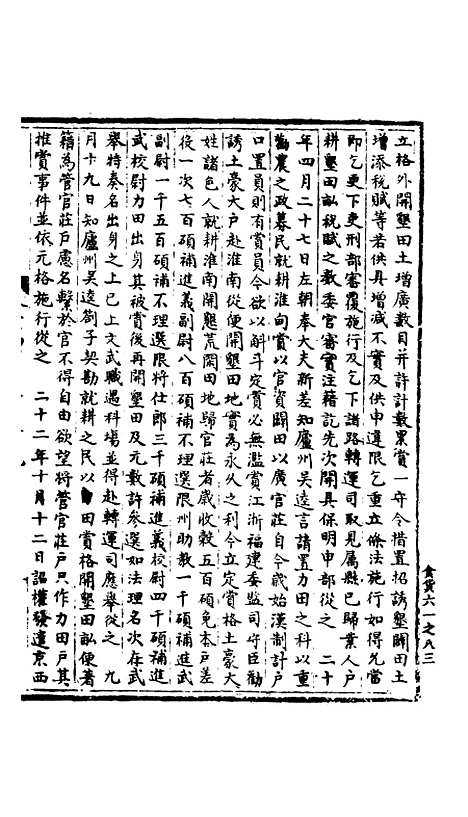 立格外開墾田土增廣數目并許計數累賞一守令措置招誘墾闢田土
增添稅賦等若供具增減不實及供申違限乞重立條法施行如得允當
即乞更下吏刑部審覆施行及乞下諸路轉運司取見屬縣已歸業人戶
耕墾田畝稅賦之數委官審實注籍訖先次開具保明申部從之　二十
年四月二十七日左朝奉大夫新差知廬州吳逵言請置力田之科以重
勸農之政募民就耕淮甸賞以官資闢田以廣官莊自今歲始漢制計戶
口置員則有賞員今欲以斛斗定賞必無濫賞江浙福建委監司守臣勸
誘土豪大戶赴淮南從便開墾田地實為永久之利今立定賞格土豪大
姓諸色人就耕淮南開墾荒閑田地歸官莊者歲收穀五百碩免本戶差
役一次七百碩補進義副尉八百碩補不理選限州助教一千碩補進武
副尉一千五百碩補不理選限將仕郎三千碩補進義校尉四千碩補進
武校尉力田出身其被賞後再開墾田及元數許參選如法理名次在武
舉特奏名出身之上已上文武職遇科場並得赴轉運司應舉從之　九
月十九日知廬州吳逵劄子契勘就耕之民以田賞格開墾田畝便著
籍為管官莊戶慮名繫於官不得自由欲望將管官莊戶只作力田戶其
推賞事件並依元格施行從之　二十二年十月十二日詔權發遣京西
食貨六一之八三